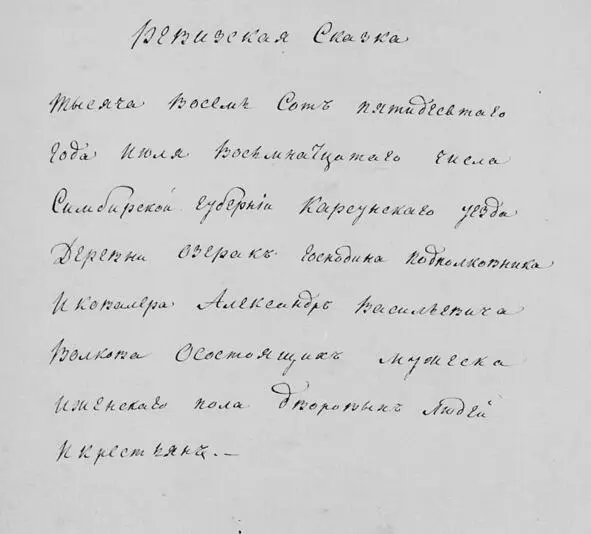 Ревизская Сказка
Тысяча Восемь Сотъ пятидесѣтаго
Года Июля Восемнатцатаго числа
Симбирской Губерніи Карсунскаго уезда
Деревни Озеракъ Господина подполковника
И ковалера Александръ Васильевича
Волкова Осостоящихъ мужеска
Иженскаго пола дворовыхъ людей
И крестьянъ. —